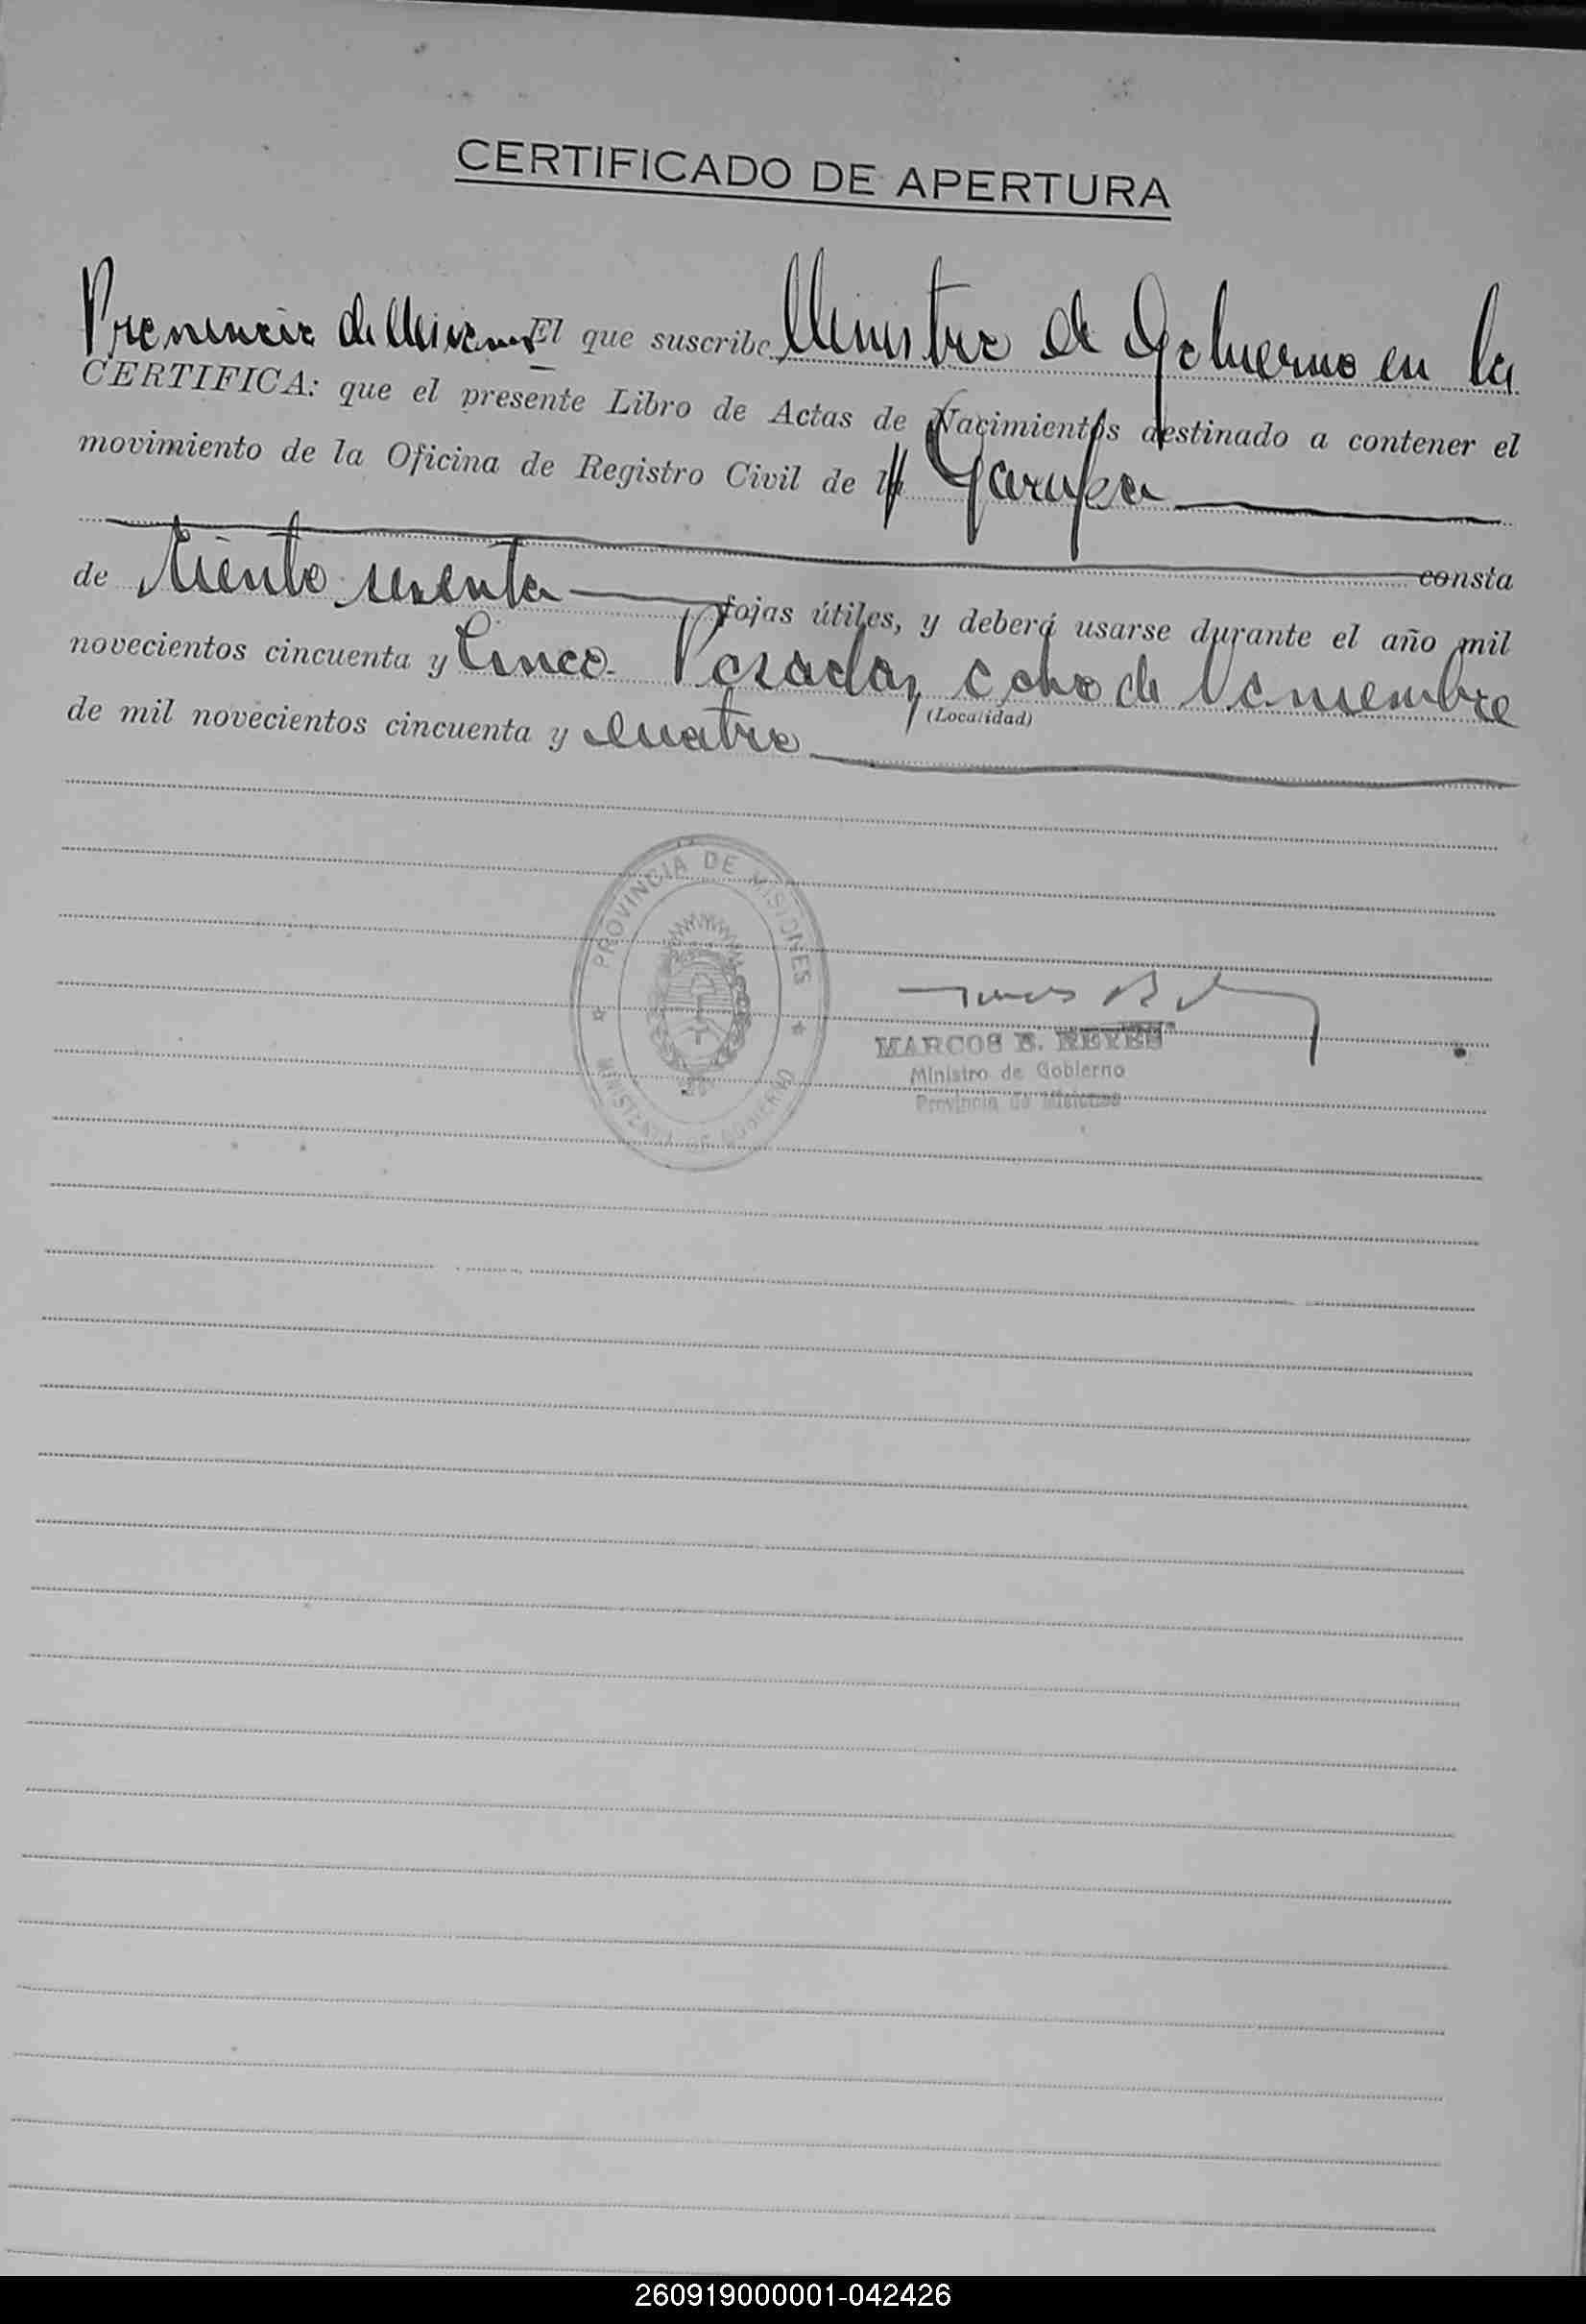 CERTIFICADO DE APERTURA
El que suscribe, Ministro de Gobierno en la
Provincia de Misiones
CERTIFICA: que el presente Libro de Actas de Nacimientos destinado a contener el
movimiento de la Oficina de Registro Civil de Garupá
consta
de Ciento sesenta fojas útiles, y deberá usarse durante el año mil
novecientos cincuenta y Cinco. Posadas, ocho de Noviembre
(Localidad)
de mil novecientos cincuenta y cuatro
PROVINCIA DE MISIONES
MINISTERIO DE GOBIERNO
MARCOS B. REYES
Ministro de Gobierno
Provincia de Misiones
260919000001-042426